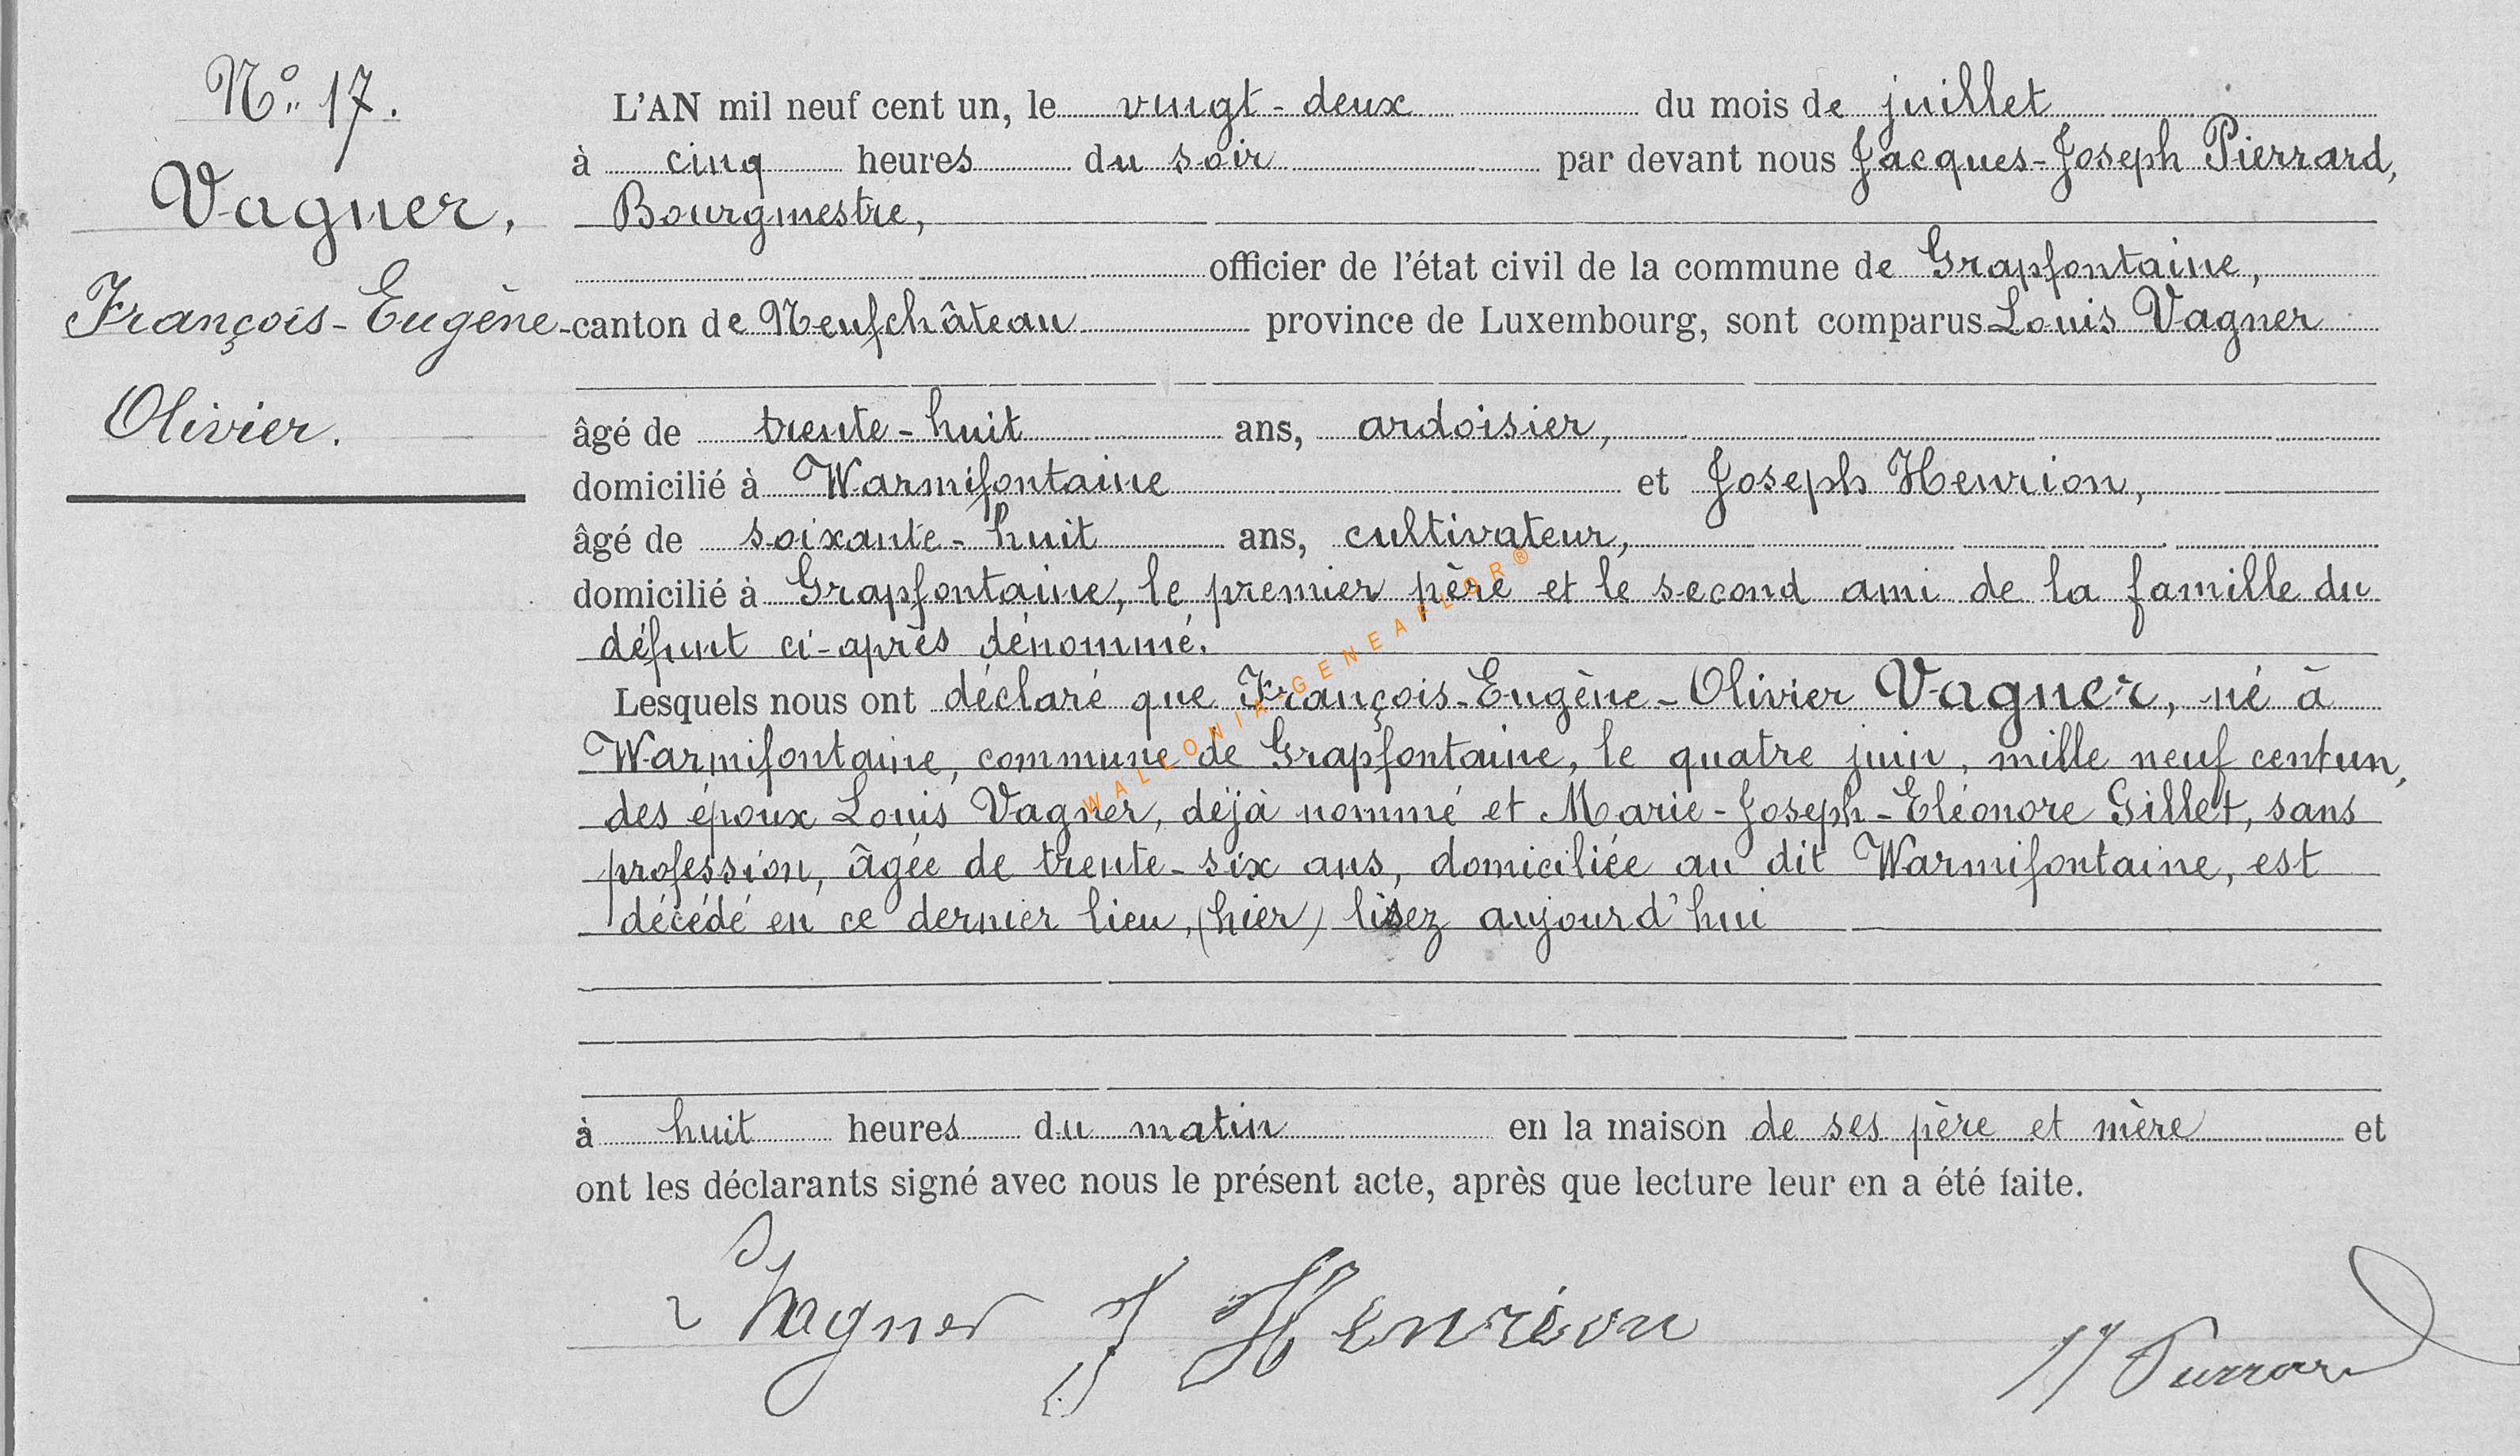 N° 17.
Vagner,
François-Eugène-
Olivier.
L'AN mil neuf cent un, le vingt-deux du mois de juillet
à cinq heures du soir par devant nous Jacques-Joseph Pierrard,
Bourgmestre,
officier de l'état civil de la commune de Grapfontaine,
canton de Neufchâteau province de Luxembourg, sont comparus Louis Vagner
âgé de trente-huit ans, ardoisier,
domicilié à Warmifontaine et Joseph Henrion,
âgé de soixante-huit ans, cultivateur,
domicilié à Grapfontaine, le premier père et le second ami de la famille du
défunt ci-après dénommé.
Lesquels nous ont déclaré que François-Eugène-Olivier Vagner, né à
Warmifontaine, commune de Grapfontaine, le quatre juin, mille neuf cent un,
des époux Louis Vagner, déjà nommé et Marie-Joseph-Eléonore Gillet, sans
profession, âgée de trente-six ans, domiciliée au dit Warmifontaine, est
décédé en ce dernier lieu, (hier) lisez aujourd'hui
à huit heures du matin en la maison de ses père et mère et
ont les déclarants signé avec nous le présent acte, après que lecture leur en a été faite.
Vagner J Henrion
JJ Pierrard
WALLONIA-GENEAFLOR®